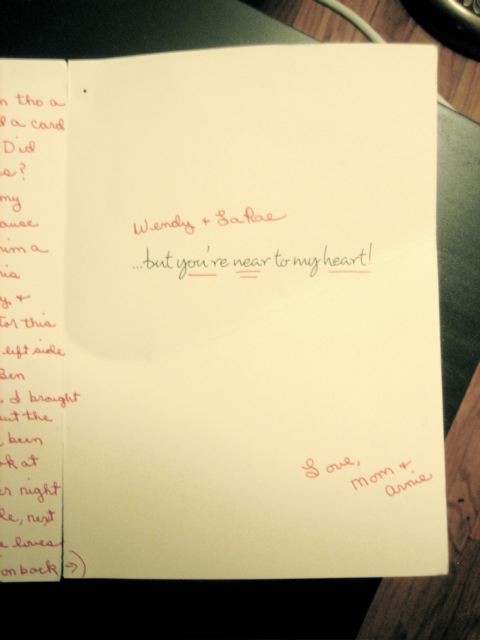 n tho a
d a card
Did
s?
my
ause
him a
his
y +
for this
left side
Ben
. I brought
out the
been
ok at
er right
le, next
e loves
on back →)
Wendy + LaRae
...but you're near to my heart!
Love,
mom +
arnie